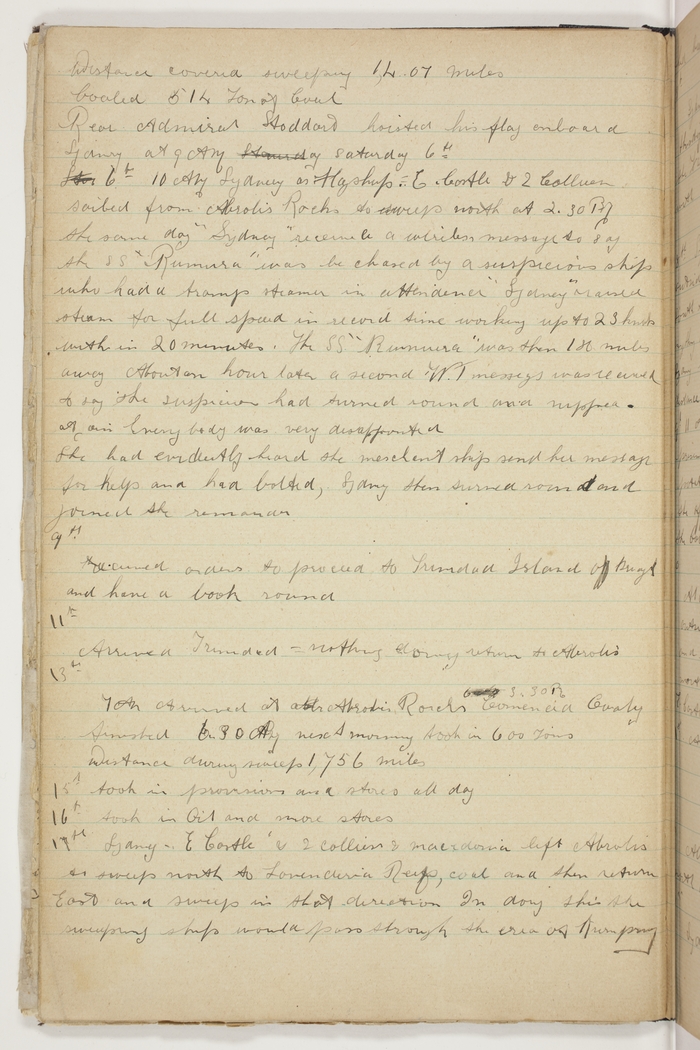 Distance covered sweeping 1,4.07 miles
Coaled 514 Tons of Coal
Rear Admiral Stoddard hoisted his flag onboard
Sydney at 9 AM Saturday 6th
6th 10 AM Sydney as Flagship - E Castle & 2 Colliers
sailed from Abrolis Rocks to sweep north at 2.30 PM
the same day "Sydney" received a wireless message to say
the SS "Rumura" was be chased by a suspicious ship
who had a tramp steamer in attendence "Sydney" raised
steam for full speed in record time working up to 23 knots
with in 20 minutes. The SS "Rumuera" was then 180 miles
away About an hour later a second W.T messege was received
to say the suspicion had turned round and nipped.
at ain Everybody was very disappointed
She had evidently heard the merchent ship send her message
for help and had bolted, Sydney then turned round and
joined the remander
9th
Received orders to proceed to Trinidad Island off
and have a look round
11th
Arrived Trinidad - nothing doing return to Abrolis
13th
3.30 PM
arrived at Abrolis Rocks Comencid Coaling
finished 6.30 AM next morning took in 600 Tons
Distance during sweep 1,756 miles
15th took in provisions and stores all day
16th took in Oil and more stores
17th Sydney - E Castle & 2 colliers & macedonia left Abrolis
to sweep north to Lavenderia Reef, coal and then return
East and sweep in that direction In doing this the
sweeping ships would pass through the area of